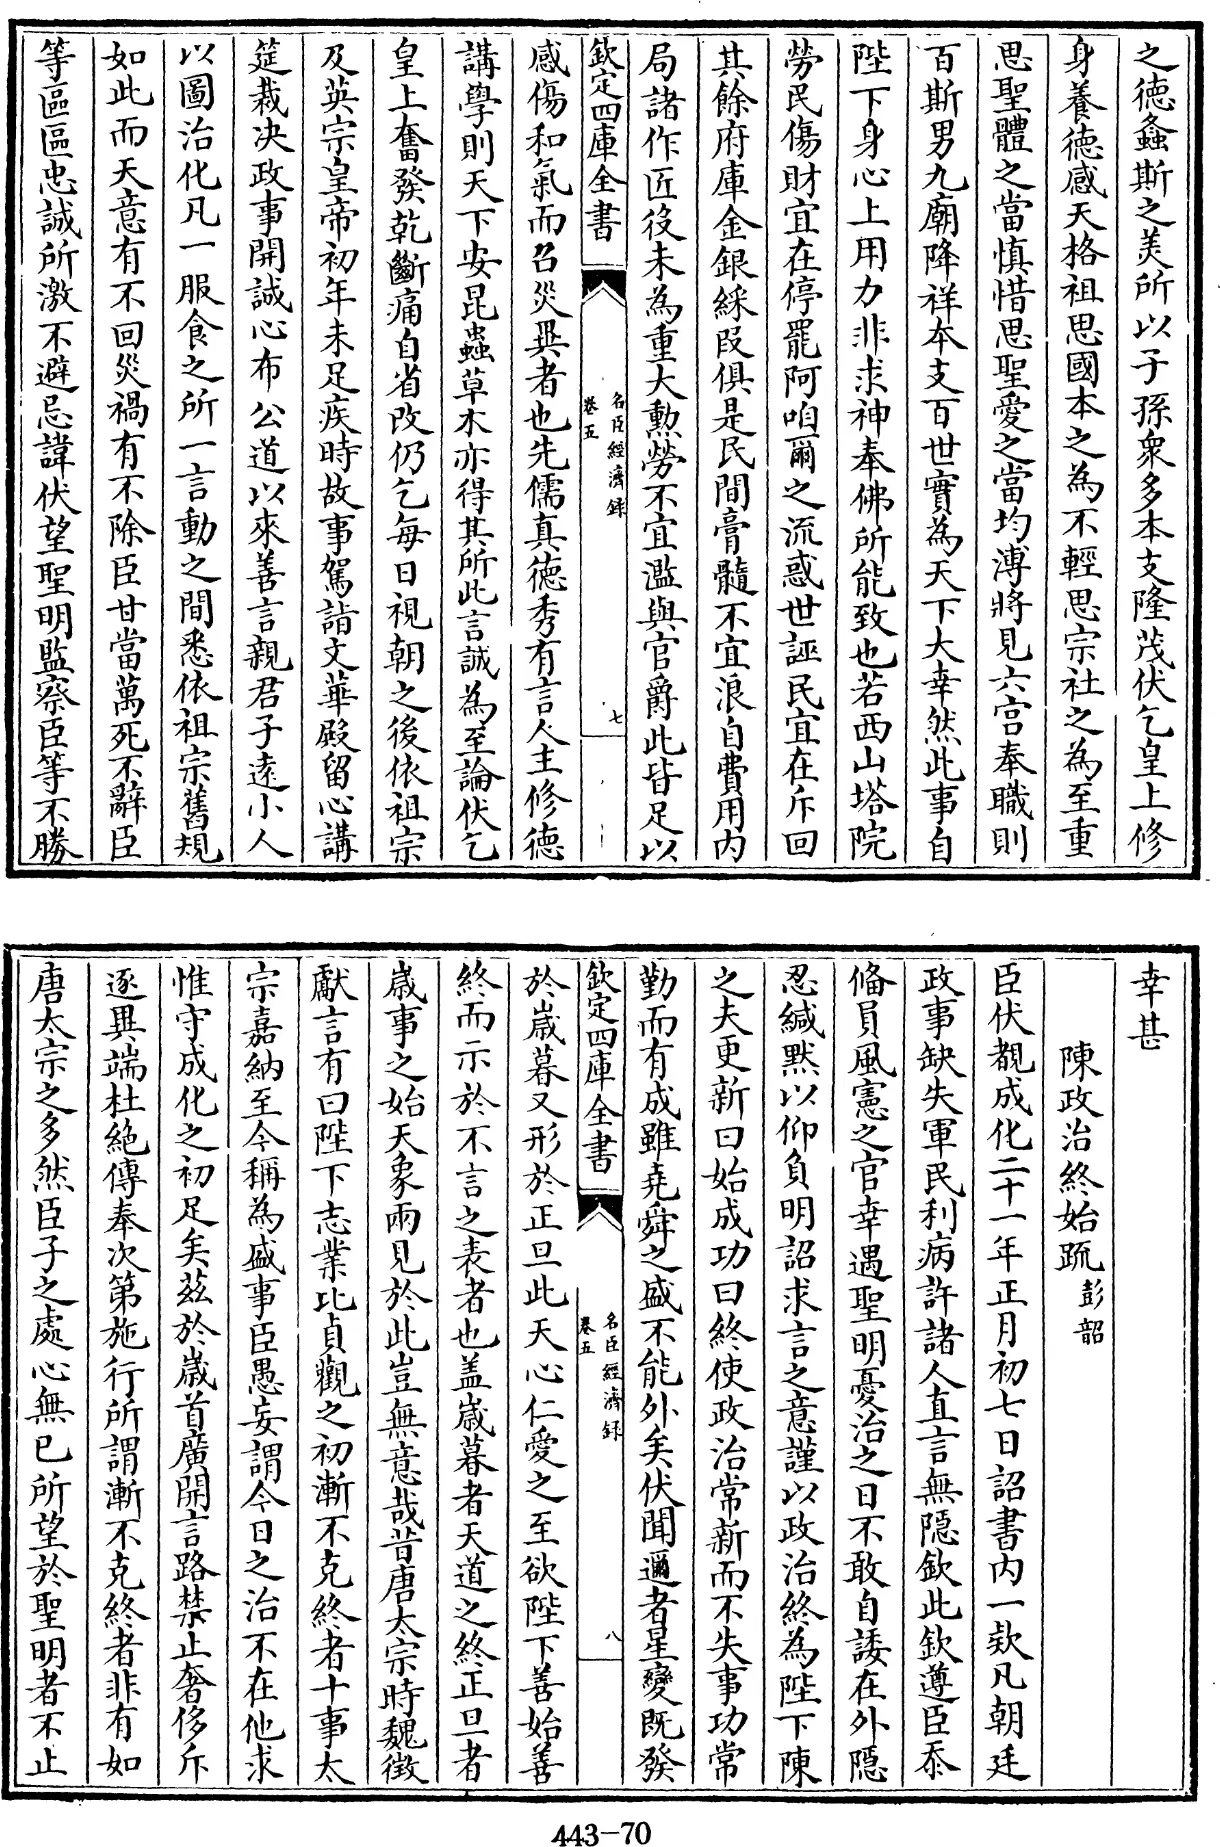 之德螽斯之美所以子孫衆多本支隆茂伏乞皇上修
身養德感天格祖思國本之為不輕思宗社之為至重
思聖體之當慎惜思聖愛之當均溥將見六宫奉職則
百斯男九廟降祥本支百世實為天下大幸然此事自
陛下身心上用力非求神奉佛所能致也若西山塔院
勞民傷財宜在停罷阿咱爾之流惑世誣民宜在斥回
其餘府庫金銀綵叚俱是民間膏髓不宜浪自費用内
局諸作匠役未為重大勲勞不宜濫與官爵此皆足以
欽定四庫全書
名臣經濟錄
卷五
七
感傷和氣而召災異者也先儒真德秀有言人主修德
講學則天下安昆蟲草木亦得其所此言誠為至論伏乞
皇上奮發乾斷痛自省改仍乞每日視朝之後依祖宗
及英宗皇帝初年未足疾時故事駕詣文華殿留心講
筵裁決政事開誠心布公道以來善言親君子逺小人
以圖治化凡一服食之所一言動之間悉依祖宗舊規
如此而天意有不回災禍有不除臣甘當萬死不辭臣
等區區忠誠所激不避忌諱伏望聖明監察臣等不勝
幸甚
陳政治終始疏 彭韶
臣伏覩成化二十一年正月初七日詔書内一欵凡朝廷
政事缺失軍民利病許諸人直言無隱欽此欽遵臣忝
備員風憲之官幸遇聖明憂治之日不敢自諉在外隱
忍緘黙以仰負明詔求言之意謹以政治終為陛下陳
之夫更新曰始成功曰終使政治常新而不失事功常
勤而有成雖堯舜之盛不能外矣伏聞邇者星變既發
欽定四庫全書
名臣經濟錄
卷五
八
於嵗暮又形於正旦此天心仁愛之至欲陛下善始善
終而示於不言之表者也盖嵗暮者天道之終正旦者
嵗事之始天象兩見於此豈無意哉昔唐太宗時魏徴
獻言有曰陛下志業比貞觀之初漸不克終者十事太
宗嘉納至今稱為盛事臣愚妄謂今日之治不在他求
惟守成化之初足矣兹於嵗首廣開言路禁止奢侈斥
逐異端杜絶傳奉次第施行所謂漸不克終者非有如
唐太宗之多然臣子之處心無已所望於聖明者不止
443-70